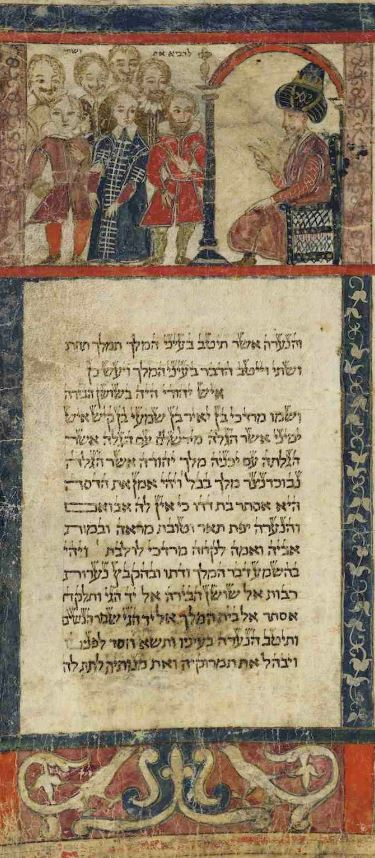 להביא את ושתי
והנערה אשר תיטב בעיני המלך תמלך תחת
ושתי וייטב הדבר בעיני המלך ויעש כן
איש יהודי היה בשושן הבירה
ושמו מרדכי בן יאיר בן שמעי בן קיש איש
ימיני אשר הגלה מירושלים עם הגלה אשר
הגלתה עם יכניה מלך יהודה אשר הגלה
נבוכדנצר מלך בבל ויהי אמן את הדסה
היא אסתר בת דדו כי אין לה אב ואם
והנערה יפת תאר וטובת מראה ובמות
אביה ואמה לקחה מרדכי לו לבת ויהי
בהשמע דבר המלך ודתו ובהקבץ נערות
רבות אל שושן הבירה אל יד הגי ותלקח
אסתר אל בית המלך אל יד הגי שמר הנשים
ותיטב הנערה בעיניו ותשא חסד לפניו
ויבהל את תמרוקיה ואת מנותיה לתת לה